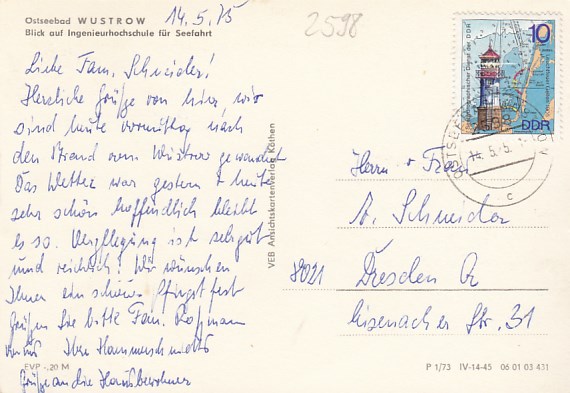 Ostseebad WUSTROW
Blick auf Ingenieurhochschule für Seefahrt
14.5.75
2598
Liebe Fam. Schneider!
Herzliche Grüße von hier, wir
sind heute vormittag nach
den Strand von Wustrow gewandert
Das Wetter war gestern + heute
sehr schön hoffendlich bleibt
es so. Verpflegung ist sehr gut
und reichlich! Wir wünschen
Ihnen ein schönes Pfingstfest
Grüßen Sie bitte Fam.
Ihre
Grüße an die Hausbewohner
EVP -,20 M
VEB Ansichtskartenverlag Köthen
10
DDR
14.5.75
c
Herrn + Frau
A. Schneider
8021 Dresden A
Eisenacher Str. 31
P 1/73 IV-14-45 06 01 03 431